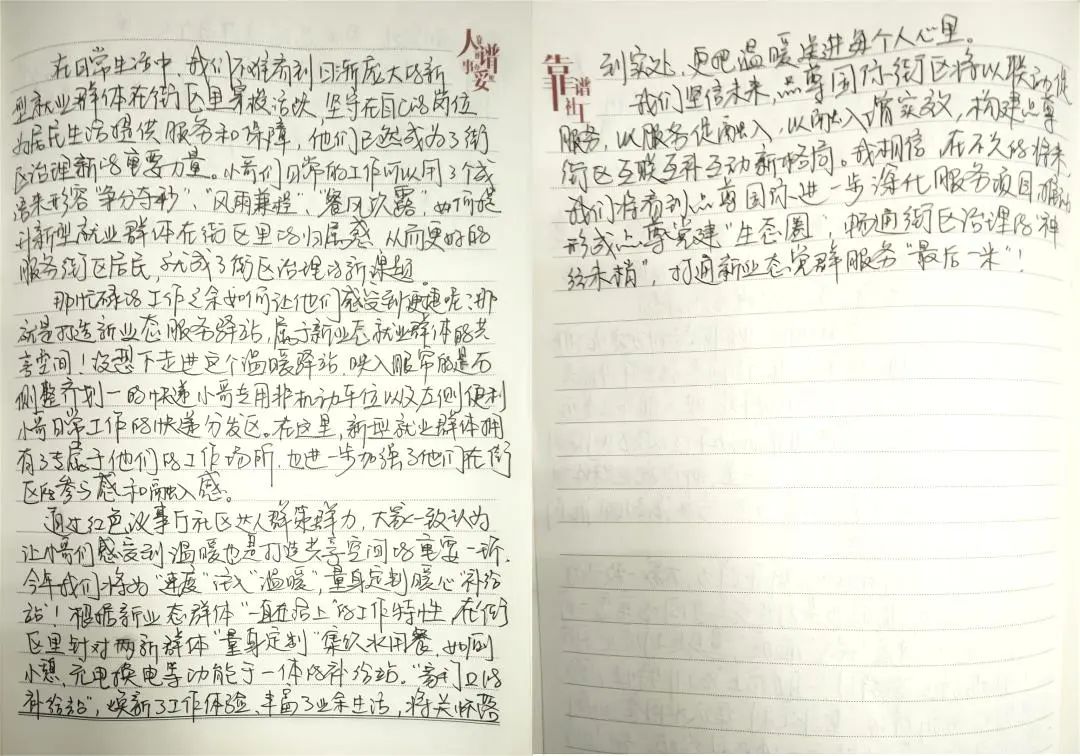 人美谱
事暖爱
在日常生活中，我们不难看到日渐庞大的新
型就业群体在街区里穿梭活跃，坚守在自己的岗位
为居民生活提供服务和保障，他们已然成为了街
区治理新的重要力量。小哥们日常的工作可以用3个成
语来形容“争分夺秒”、“风雨兼程”、“餐风饮露”，如何提
升新型就业群体在街区里的归属感，从而更好的
服务街区居民，就成了街区治理的新课题。
那忙碌的工作之余如何让他们感受到便捷呢？那
就是打造新业态服务驿站，属于新业态就业群体的共
享空间！设想下走进这个温暖驿站，映入眼帘的是右
侧整齐划一的快递小哥专用非机动车位以及左侧便利
小哥日常工作的快递分发区。在这里，新型就业群体拥
有了专属于他们的工作场所，也进一步加强了他们在街
区的参与感和融入感。
通过红色议事厅社区达人群策群力，大家一致认为
让小哥们感受到温暖也是打造共享空间的重要一环，
今年我们将为“速度”注入“温暖”，量身定制暖心“补给
站”！根据新业态群体“一直在路上”的工作特性，在街
区里针对两新群体“量身定制”集饮水用餐、如厕
小憩、充电换电等功能于一体的补给站。“家门口的
补给站”，焕新了工作体验、丰富了业余生活，将关怀落
靠谱社工
到实处，更把温暖送进每个人心里。
我们坚信未来，点尊国际街区将以联动促
服务，以服务促融入，以融入增实效，构建点尊
街区互联互补互动新格局。我相信，在不久的将来，
我们将看到点尊国际进一步深化服务项目
形成点尊党建“生态圈”，畅通街区治理的“神
经末梢”，打通新业态党群服务“最后一米”！